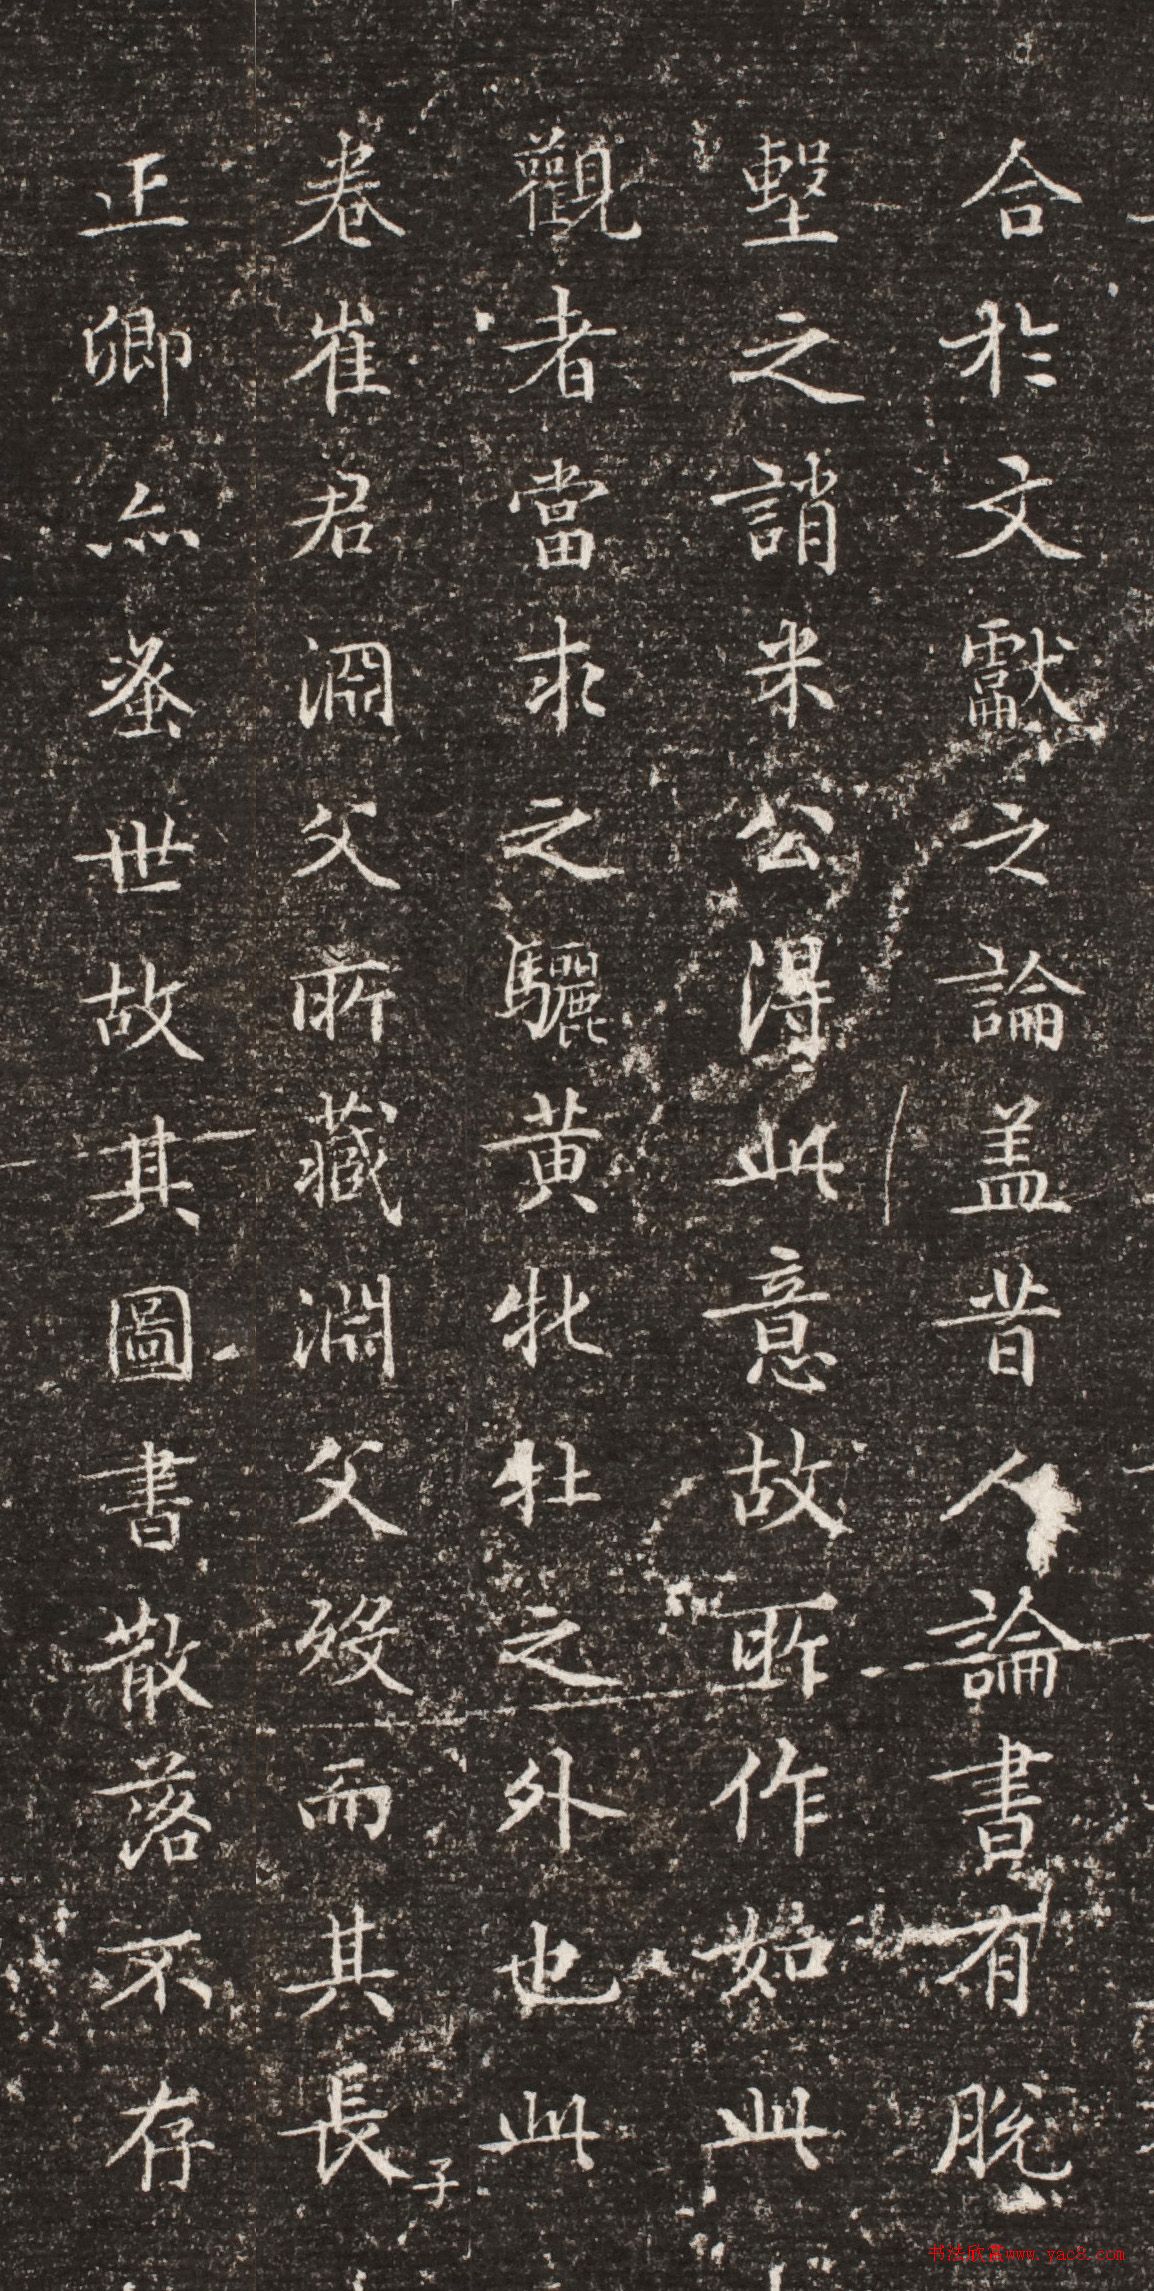 合於文獻之論盖昔人論書有脫
墼之誚米公得此意故所作如此
觀者當求之驪黃牝牡之外也此
卷崔君淵父所藏淵父歿而其長子
正卿亦蚤世故其圖書散落不存
书法欣赏www.yac8.com